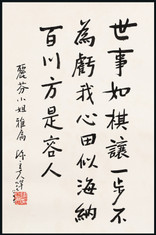 世事如棋讓一步不
為虧我心田似海納
百川方是容人
麗芬小姐雅屬